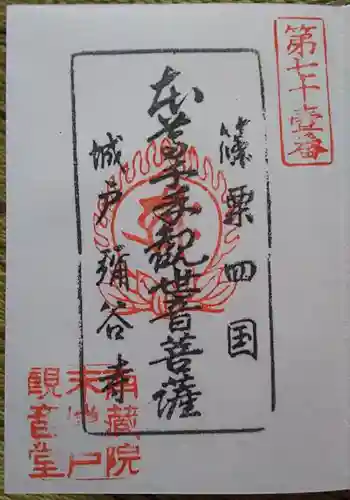 第七十壹番
篠栗四国
本尊千手観世音菩薩
城戸弥谷寺
南蔵院
城戸
観音堂